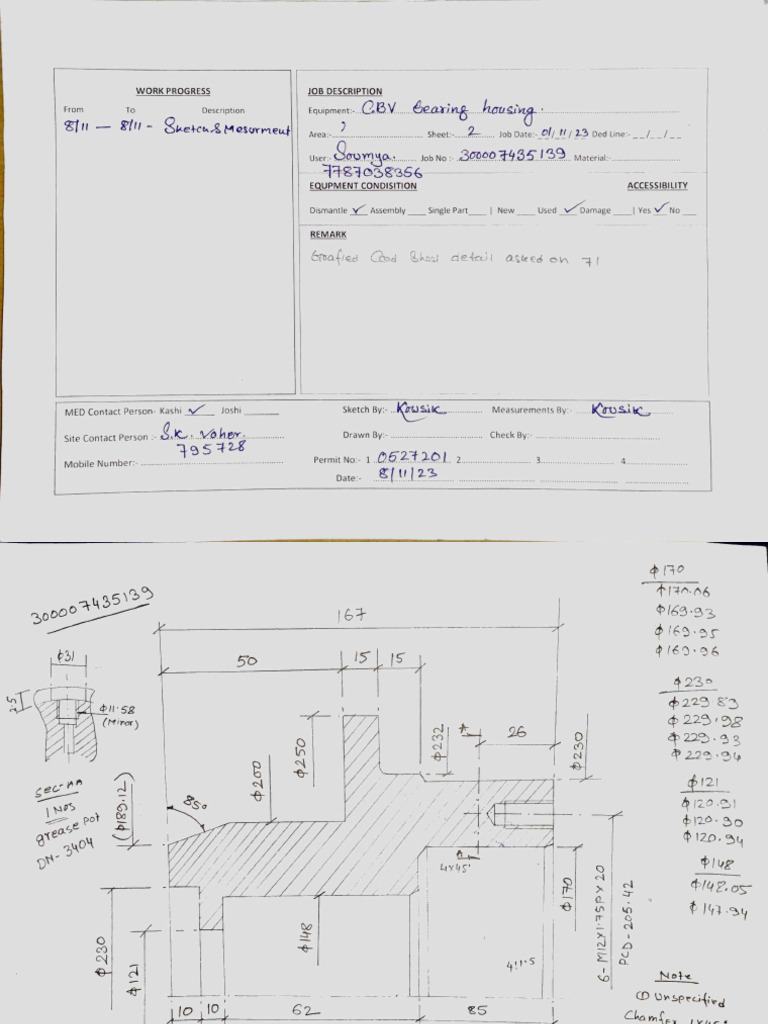 WORK PROGRESS
From To Description
8/11 — 8/11 - Sketch & Mesurment
JOB DESCRIPTION
Equipment:- CBV bearing housing.
Area:- Sheet:- 2 Job Date:- 01/11/23 Ded Line:- _/_/_
User:- Soumya. Job No :- 300007435139 Material:-
7787038356
EQUPMENT CONDISITION ACCESSIBILITY
Dismantle ✓ Assembly ___ Single Part___ | New ___ Used ✓ Damage ___| Yes ✓ No ___
REMARK
detail asked on 71
MED Contact Person- Kashi ✓ Joshi
Site Contact Person :- S.K. Voher.
795728
Mobile Number:-
Sketch By:- Kousik Measurements By:- Kousik
Drawn By:- Check By:-
Permit No:- 1 0527201 2 3 4
Date:- 8/11/23
300007435139
167
50 15 15
26
ϕ31
25
ϕ11.58
(Minor)
SEC-AA
1 Nos
grease pot
DN-3404
(ϕ189.12)
85°
ϕ200
ϕ250
ϕ232
A
ϕ230
A
4x45°
ϕ170
6-M12X1.75PX20
PCD-205.42
ϕ230
ϕ121
ϕ148
10 10 62 85
ϕ170
ϕ170.06
ϕ169.93
ϕ169.95
ϕ169.96
ϕ230
ϕ229.89
ϕ229.98
ϕ229.93
ϕ229.94
ϕ121
ϕ120.91
ϕ120.90
ϕ120.94
ϕ148
ϕ148.05
ϕ147.94
Note
① Unspecified
Chamfer 1X45°